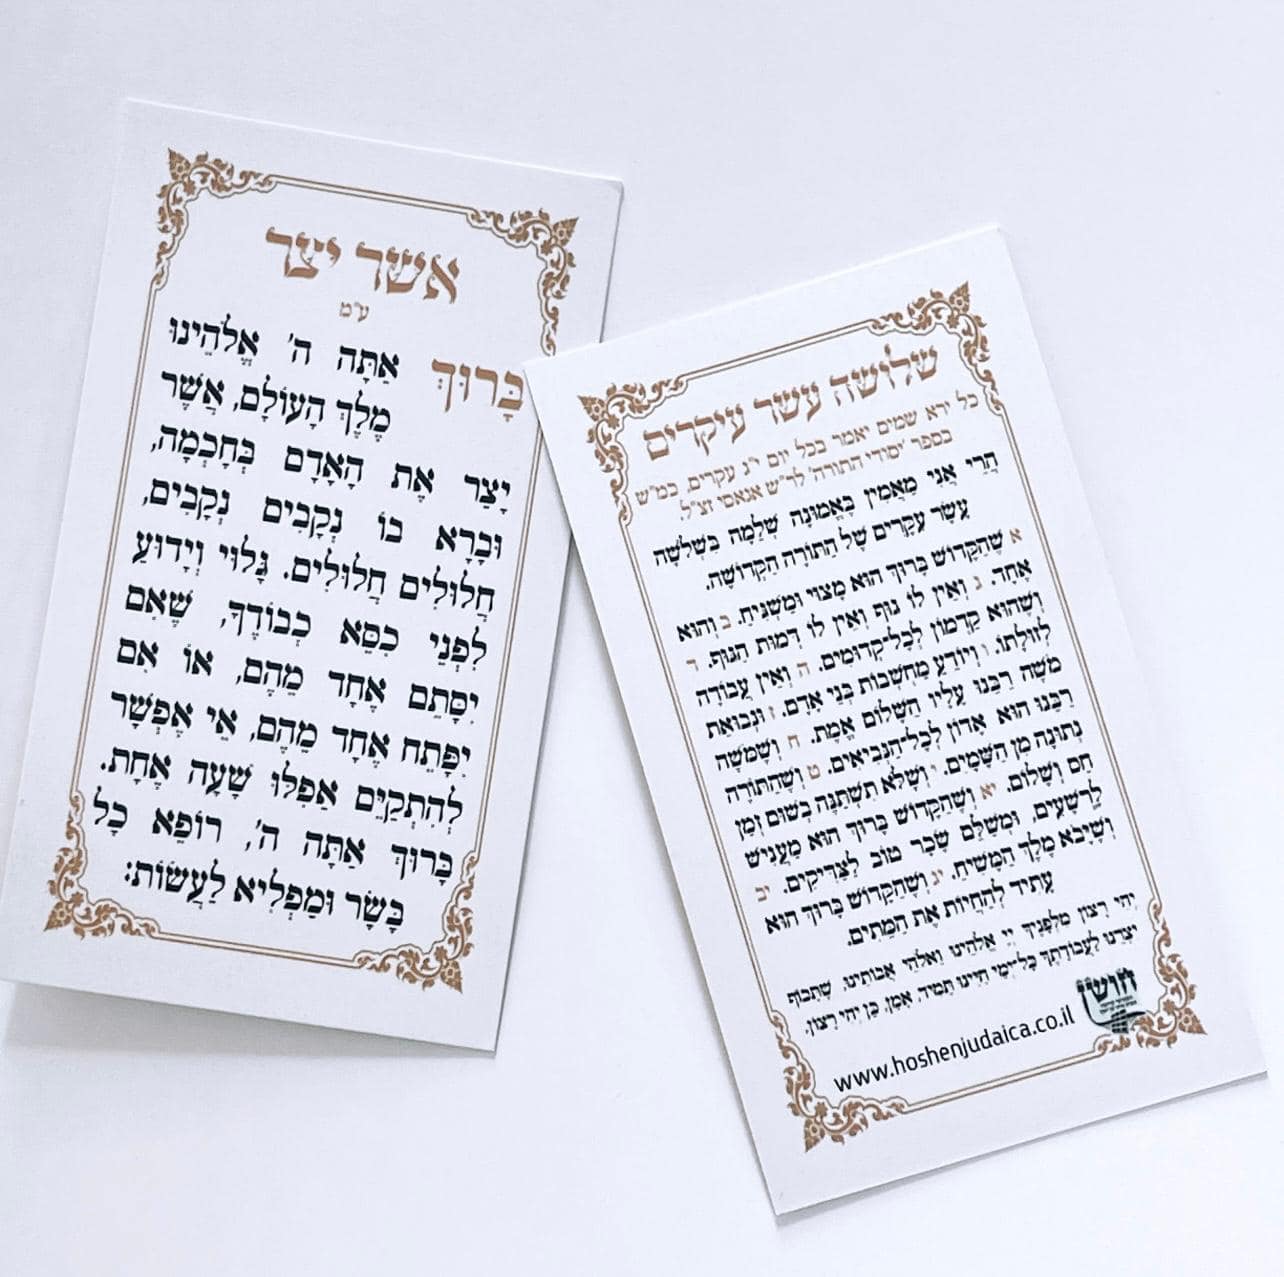 אשר יצר
ע״מ
בָּרוּךְ אַתָּה ה׳ אֱלֹהֵינוּ
מֶלֶךְ הָעוֹלָם, אֲשֶׁר
יָצַר אֶת הָאָדָם בְּחָכְמָה,
וּבָרָא בוֹ נְקָבִים נְקָבִים,
חֲלוּלִים חֲלוּלִים. גָּלוּי וְיָדוּעַ
לִפְנֵי כִסֵּא כְבוֹדֶךָ, שֶׁאִם
יִסָּתֵם אֶחָד מֵהֶם, אוֹ אִם
יִפָּתֵחַ אֶחָד מֵהֶם, אֵי אֶפְשָׁר
לְהִתְקַיֵּם אֲפִלּוּ שָׁעָה אֶחָת.
בָּרוּךְ אַתָּה ה׳, רוֹפֵא כָל
בָּשָׂר וּמַפְלִיא לַעֲשׂוֹת:
שלושה עשר עיקרים
כל ירא שמים יאמר בכל יום י״ג עקרים, כמ״ש
בספר ׳יסודי התורה׳ לר״ש אנאסי זצ״ל.
הֲרֵי אֲנִי מַאֲמִין בֶּאֱמוּנָה שְׁלֵמָה בִּשְׁלֹשָׁה
עָשָׂר עִקָּרִים שֶׁל הַתּוֹרָה הַקְּדוֹשָׁה.
א שֶׁהַקָּדוֹשׁ בָּרוּךְ הוּא מָצוּי וּמַשְׁגִּיחַ. ב וְהוּא
אֶחָד. ג וְאֵין לוֹ גוּף וְאֵין לוֹ דְּמוּת הַגּוּף. ד
וְשֶׁהוּא קַדְמוֹן לְכָל־קְדוּמִים. ה וְאֵין עֲבוֹדָה
לְזוּלָתוֹ. ו וְיוֹדֵעַ מַחְשְׁבוֹת בְּנֵי אָדָם. ז וּנְבוּאַת
מֹשֶׁה רַבֵּנוּ עָלָיו הַשָּׁלוֹם אֱמֶת. ח וְשֶׁמֹּשֶׁה
רַבֵּנוּ הוּא אָדוֹן לְכָל־הַנְּבִיאִים. ט וְשֶׁהַתּוֹרָה
נְתוּנָה מִן הַשָּׁמַיִם. י וְשֶׁלֹּא תִשְׁתַּנֶּה בְּשׁוּם זְמַן
חָס וְשָׁלוֹם. יא וְשֶׁהַקָּדוֹשׁ בָּרוּךְ הוּא מַעֲנִישׁ
לָרְשָׁעִים, וּמְשַׁלֵּם שָׂכָר טוֹב לַצַּדִּיקִים. יב
וְשֶׁיָּבֹא מֶלֶךְ הַמָּשִׁיחַ. יג וְשֶׁהַקָּדוֹשׁ בָּרוּךְ הוּא
עָתִיד לְהַחֲיוֹת אֶת הַמֵּתִים.
יְהִי רָצוֹן מִלְּפָנֶיךָ יְיָ אֱלֹהֵינוּ וֵאלֹהֵי אֲבוֹתֵינוּ, שֶׁתָּכוֹף
יִצְרֵנוּ לַעֲבוֹדָתֶךָ כָּל־יְמֵי חַיֵּינוּ תָּמִיד, אָמֵן, כֵּן יְהִי רָצוֹן.
חושן
www.hoshenjudaica.co.il